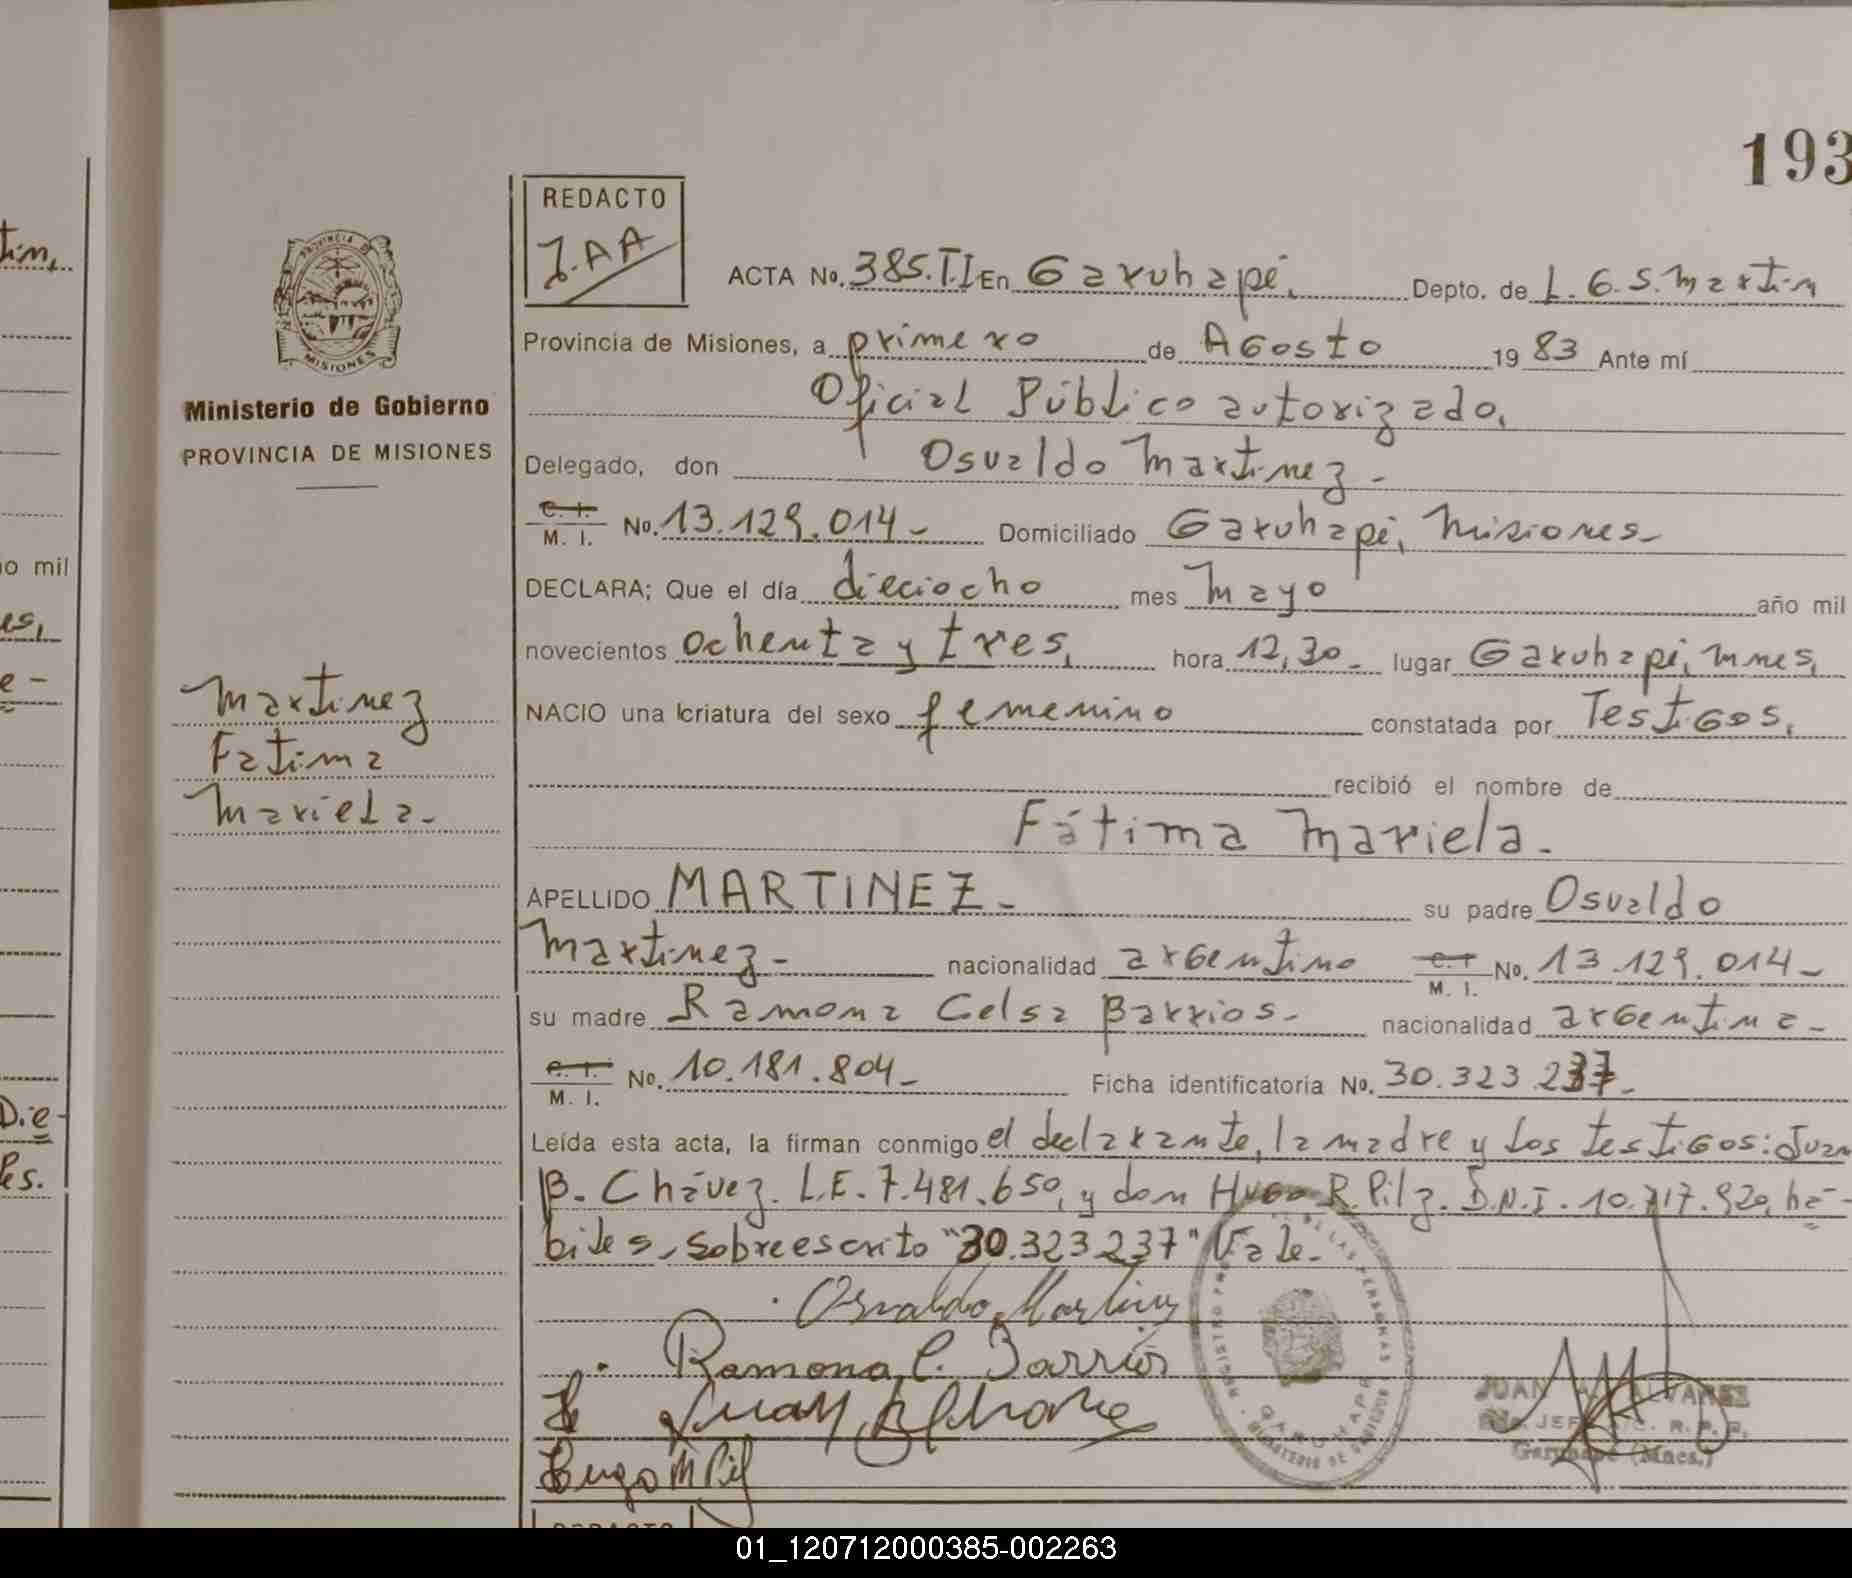 193
REDACTO
J.AA
ACTA No. 385.T.I En Garuhapé, Depto. de L.G.S.Martin
Provincia de Misiones, a primero de Agosto 1983 Ante mí
Oficial Público autorizado,
Delegado, don Osvaldo Martinez -
C. I.
M. I. No. 13.129.014- Domiciliado Garuhapé, Misiones-
DECLARA; Que el día dieciocho mes Mayo año mil
novecientos ochenta y tres, hora 12,30- lugar Garuhapé, Mnes,
NACIO una criatura del sexo femenino constatada por Testigos,
recibió el nombre de
Fátima Mariela.
APELLIDO MARTINEZ- su padre Osvaldo
Martinez- nacionalidad argentino C. I M. I. No. 13.129.014-
su madre Ramona Celsa Barrios- nacionalidad argentina-
C. I.
M. I. No. 10.181.804- Ficha identificatoria No. 30.323.237-
Leída esta acta, la firman conmigo el declarante, la madre y los testigos: Juan
B. Chávez. L.E. 7.481.650, y don Hugo R. Pilz. D.N.I. 10.717.920, há-
biles, Sobreescrito "30.323.237" Vale-
Osvaldo Martinez
Ramona C. Barrios
Juan B Chave
Hugo Pilz
JUAN A. ALVAREZ
JEFE R. P. P.
Garuhapé (Mnes.)
PROVINCIA DE MISIONES
Ministerio de Gobierno
PROVINCIA DE MISIONES
Martinez
Fatima
Mariela-
tin,
io mil
es,
e-
Die-
les.
REDACTO
01_120712000385-002263